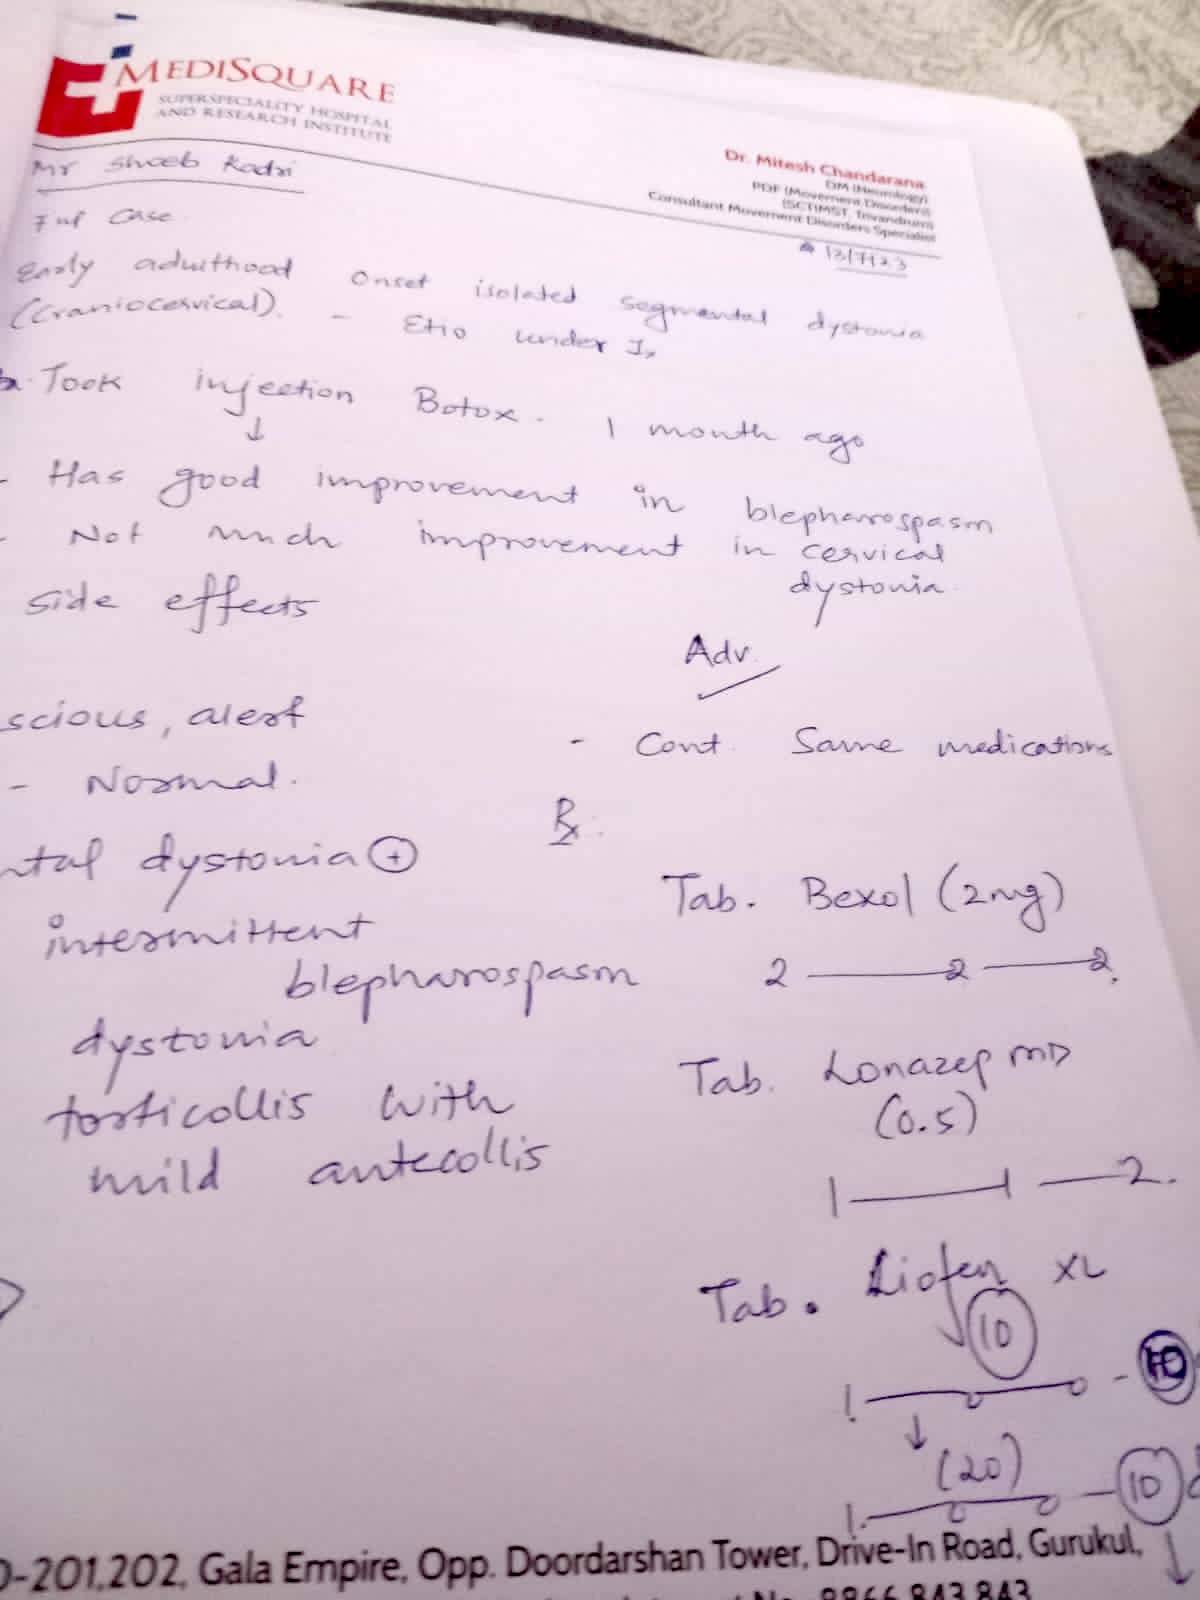 MEDISQUARE
SUPERSPECIALITY HOSPITAL
AND RESEARCH INSTITUTE
Dr. Mitesh Chandarana
DM (Neurology)
PDF (Movement Disorders)
(SCTIMST, Trivandrum)
Consultant Movement Disorders Specialist
Mr Shoeb Kadri
13/7/23
Fup Case.
Early adulthood onset isolated segmental dystonia
(Craniocervical). - Etio under Ix
Took injection Botox. 1 month ago
↓
- Has good improvement in blepharospasm
- Not much improvement in cervical
dystonia.
side effects
Adv.
scious, alert
- Cont. Same medications
- Normal.
Rx.
ntal dystonia (+)
Tab. Bexol (2mg)
intermittent
blepharospasm
2 — 2 — 2.
dystonia
Tab. Lonazep MD
(0.5)
torticollis with
mild antecollis
1 — 1 — 2.
Tab. Liofen XL
10
1 — 0 — 0 - 10
↓
(20)
1 — 0 — 0 - 10
↓
D-201,202, Gala Empire, Opp. Doordarshan Tower, Drive-In Road, Gurukul,
8866 843 843